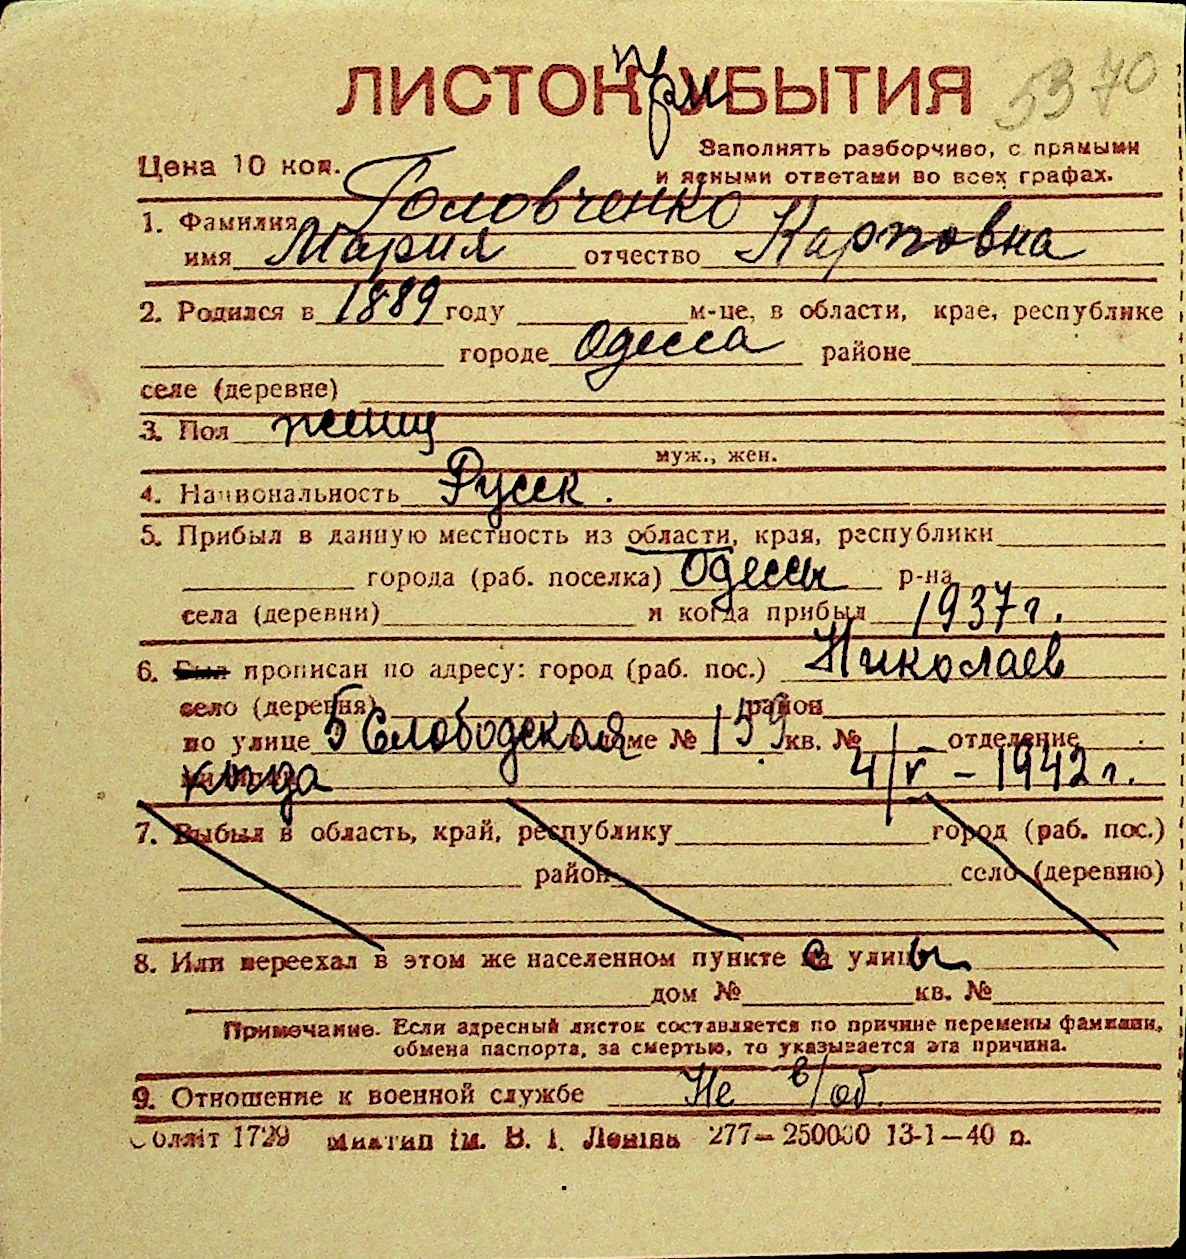 ЛИСТОК прибЫТИЯ 5370
Цена 10 коп. Заполнять разборчиво, с прямыми
и ясными ответами во всех графах.
1. Фамилия Головченко
имя Мария отчество Карповна
2. Родился в 1889 году м-це, в области, крае, республике
городе Одесса районе
селе (деревне)
3. Пол женщ
муж., жен.
4. Национальность Русск.
5. Прибыл в данную местность из области, края, республики
города (раб. поселка) Одессы р-на
села (деревни) и когда прибыл 1937 г.
6. Был прописан по адресу: город (раб. пос.) Николаев
село (деревня) район
по улице 5 Слободская доме № 159 кв. № отделение
когда 4/V – 1942 г.
7. Выбыл в область, край, республику город (раб. пос.)
район село (деревню)
8. Или переехал в этом же населенном пункте с улицы
дом № кв. №
Примечание. Если адресный листок составляется по причине перемены фамилии,
обмена паспорта, за смертью, то указывается эта причина.
9. Отношение к военной службе Не в/об.
Облліт 1729 ім. В. І. Леніна 277—250000 13-1—40 р.